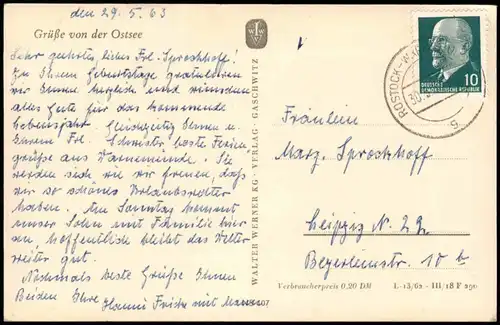 den 29. 5. 63
Grüße von der Ostsee
Sehr geehrtes, liebes Frl. Sprockhoff!
Zu Ihrem Geburtstage gratulieren
wir Ihnen herzlich und wünschen
alles Gute für das kommende
Lebensjahr. Gleichzeitig Ihnen u.
Ihrem Frl. Schwester, beste Ferien-
grüße aus Warnemünde. Sie
werden sich wie wir freuen, daß
wir so schönes Urlaubswetter
haben. Am Sonntag kommt
unser Sohn mit Familie hier
an, hoffentlich bleibt das Wetter
weiter gut.
Nochmals beste Grüße Ihnen
Beiden Ihre Hanni Fritsche mit
WALTER WERNER KG · VERLAG · GASCHWITZ
DEUTSCHE
DEMOKRATISCHE REPUBLIK
10
ROSTOCK-W
30.
Fräulein
Marg. Sprockhoff
Leipzig N. 22
Beyerleinstr. 10 b
Verbraucherpreis 0.20 DM
L-13/62 - III/18 F 290